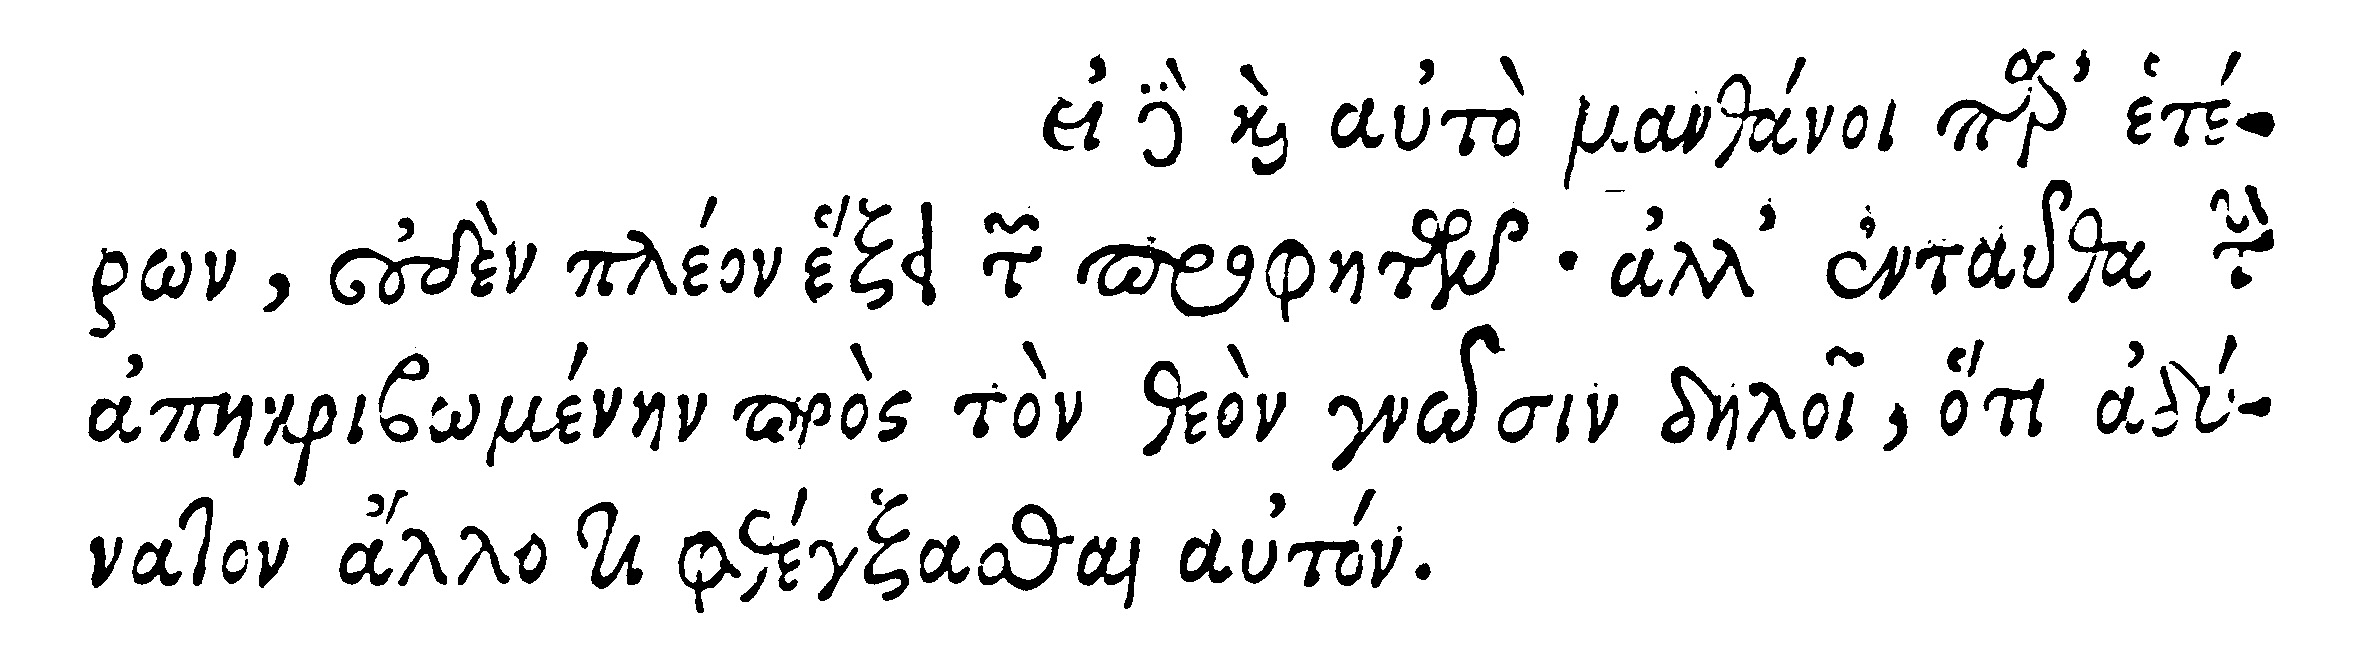 εἰ γὰρ καὶ αὐτὸ μανθάνοι παρ’ ἑτέ-
ρων, οὐδὲν πλέον ἕξει τῶν προφητῶν· ἀλλ’ ἐνταῦθα τὴν
ἀπηκριβωμένην πρὸς τὸν θεὸν γνῶσιν δηλοῖ, ὅτι ἀδύ-
νατον ἄλλο τι φθέγξασθαι αὐτόν.